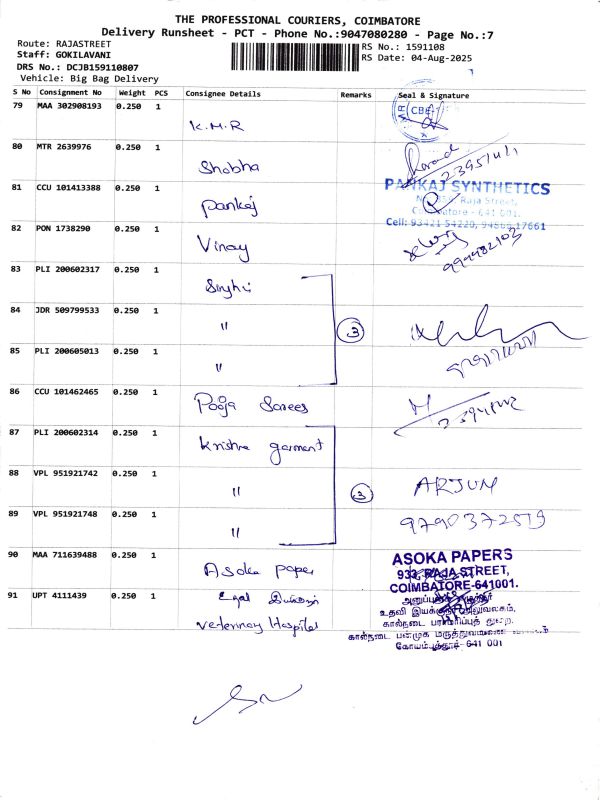 THE PROFESSIONAL COURIERS, COIMBATORE
Delivery Runsheet - PCT - Phone No.:9047080280 - Page No.:7
Route: RAJASTREET
Staff: GOKILAVANI
DRS No.: DCJB159110807
Vehicle: Big Bag Delivery
RS No.: 1591108
RS Date: 04-Aug-2025
S No Consignment No Weight PCS Consignee Details Remarks Seal & Signature
79 MAA 302908193 0.250 1 K.M.R
CBE
80 MTR 2639976 0.250 1 Shobha
81 CCU 101413388 0.250 1 Pankaj
PANKAJ SYNTHETICS
Raja Street,
Coimbatore - 641 001.
Cell: 93421 54220, 94866 17661
82 PON 1738290 0.250 1 Vinay
83 PLI 200602317 0.250 1
84 JDR 509799533 0.250 1 " 3
85 PLI 200605013 0.250 1 "
86 CCU 101462465 0.250 1 Pooja Sarees
87 PLI 200602314 0.250 1 Krishna garment
88 VPL 951921742 0.250 1 " 3 ARJUN
89 VPL 951921748 0.250 1 "
90 MAA 711639488 0.250 1 Asoka paper
ASOKA PAPERS
932, RAJA STREET,
COIMBATORE-641001.
91 UPT 4111439 0.250 1
Veterinary Hospital
உதவி இயக்குநர் அலுவலகம்,
கால்நடை பராமரிப்புத் துறை,
கால்நடை பன்முக மருத்துவமனை
கோயம்புத்தூர் - 641 001